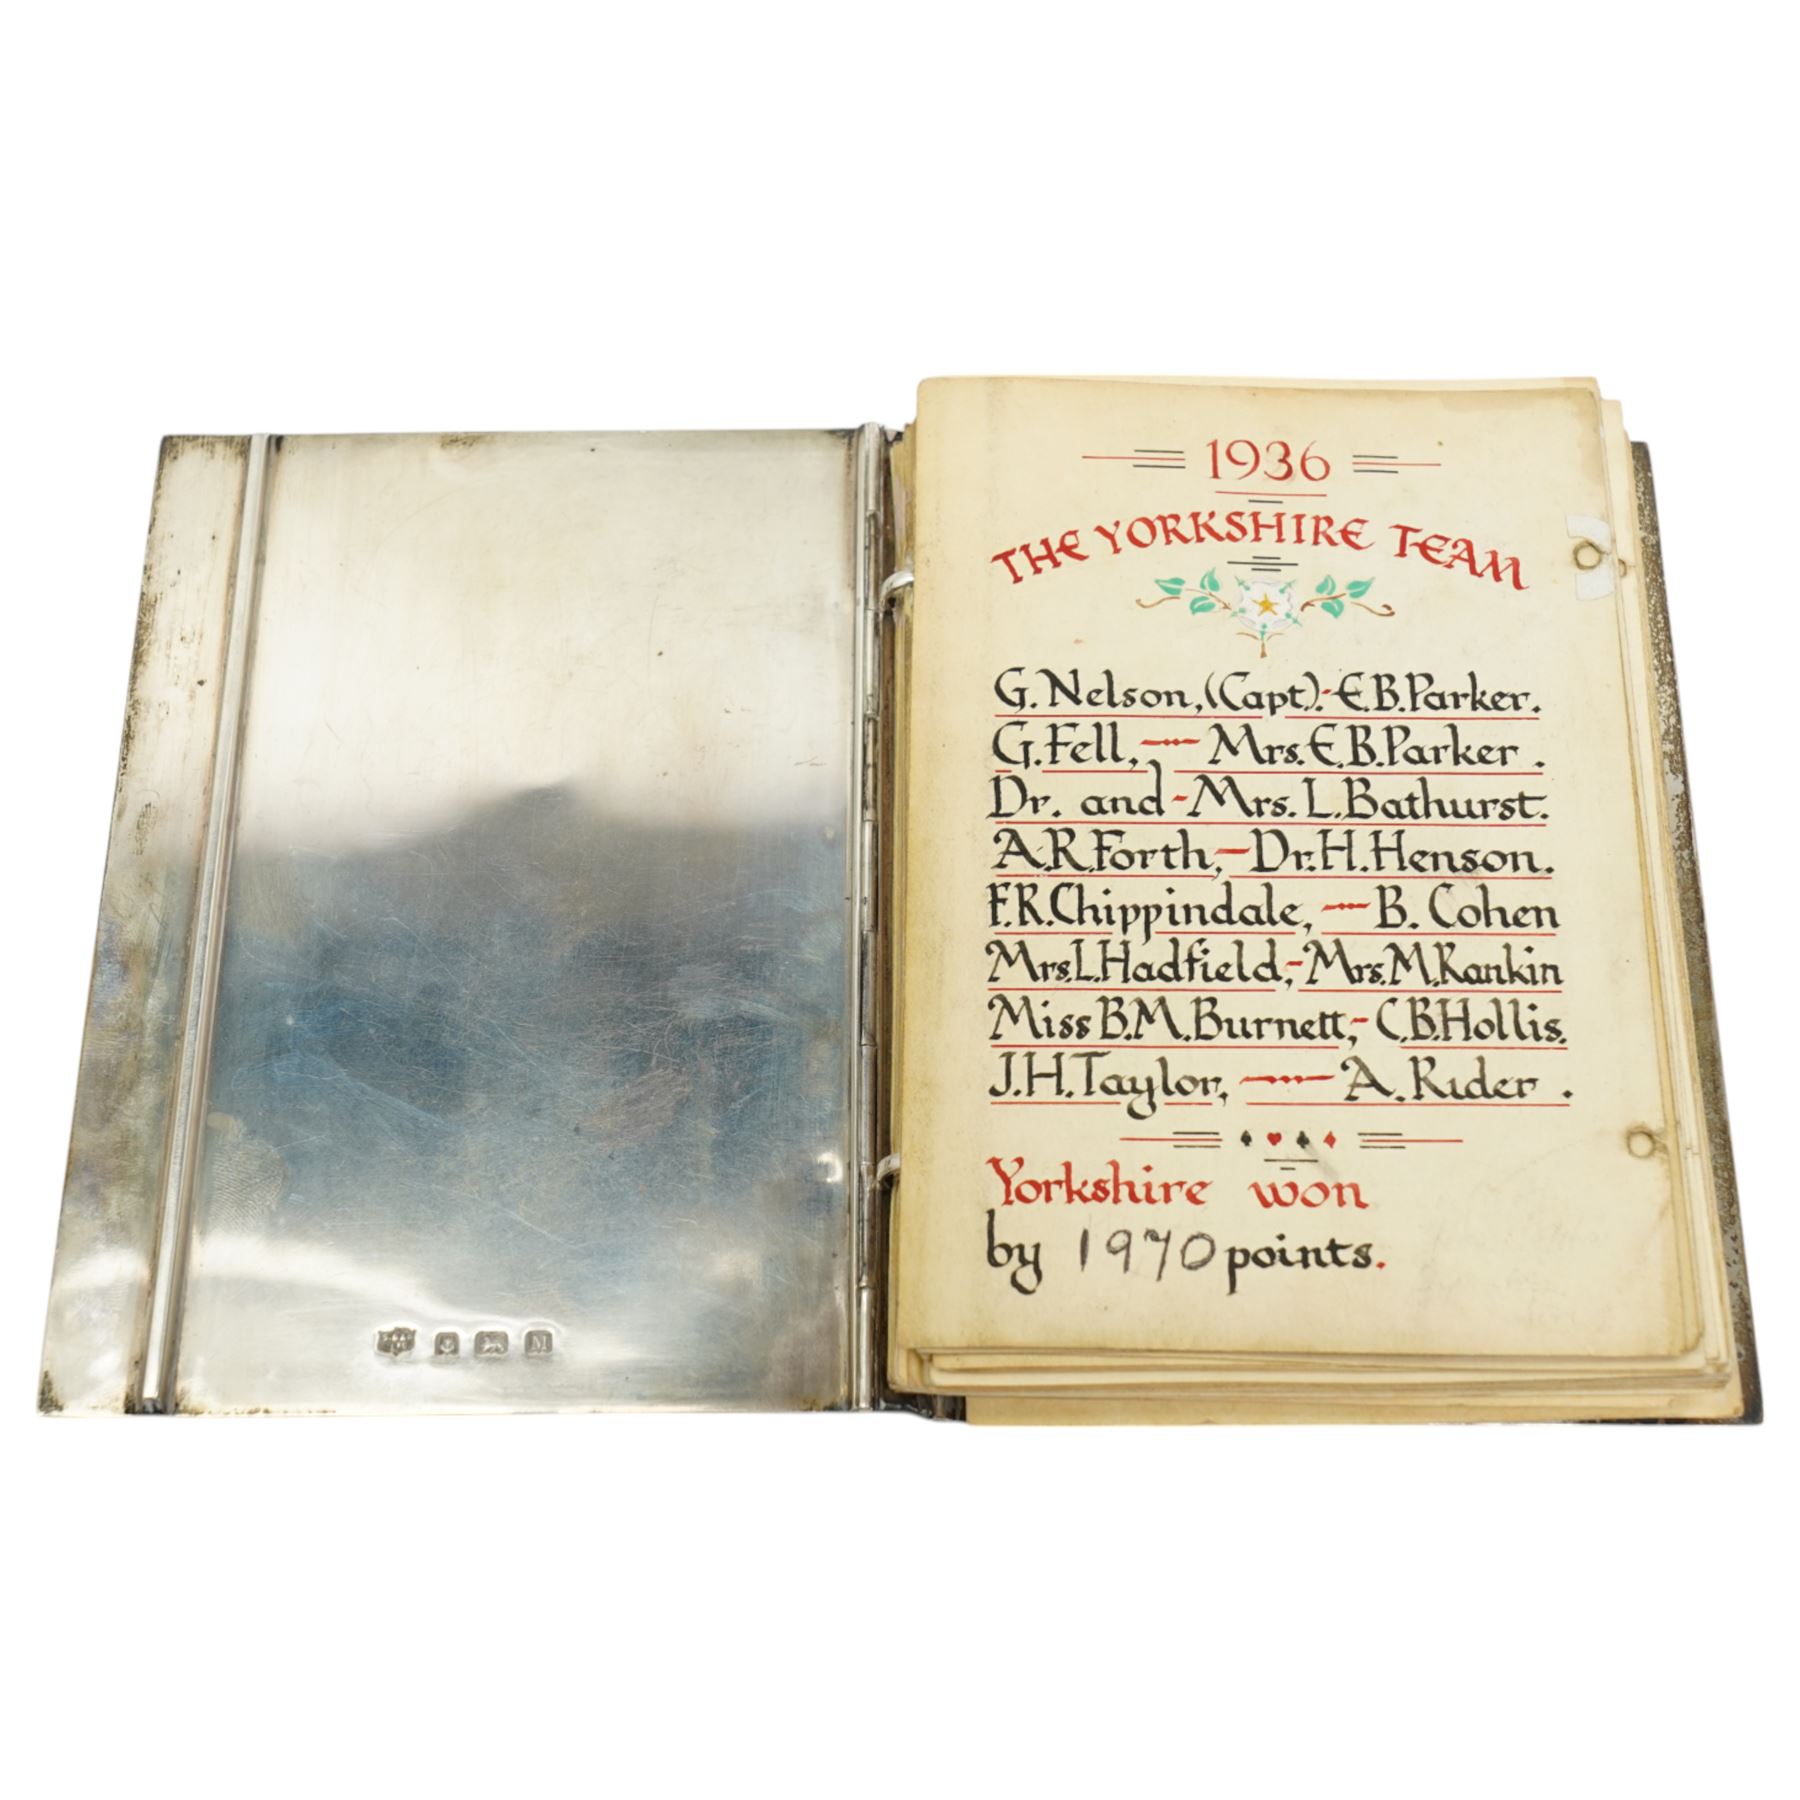 1936
THE YORKSHIRE TEAM
G. Nelson, (Capt):- E.B. Parker.
G. Fell, — Mrs. E.B. Parker.
Dr. and - Mrs. L. Bathurst.
A.R. Forth, — Dr. H. Henson.
F.R. Chippindale, — B. Cohen
Mrs. L. Hadfield, - Mrs. M. Rankin
Miss B.M. Burnett, - C.B. Hollis.
J.H. Taylor, — A. Rider.
♠ ♥ ♣ ♦
Yorkshire won
by 1970 points.
M